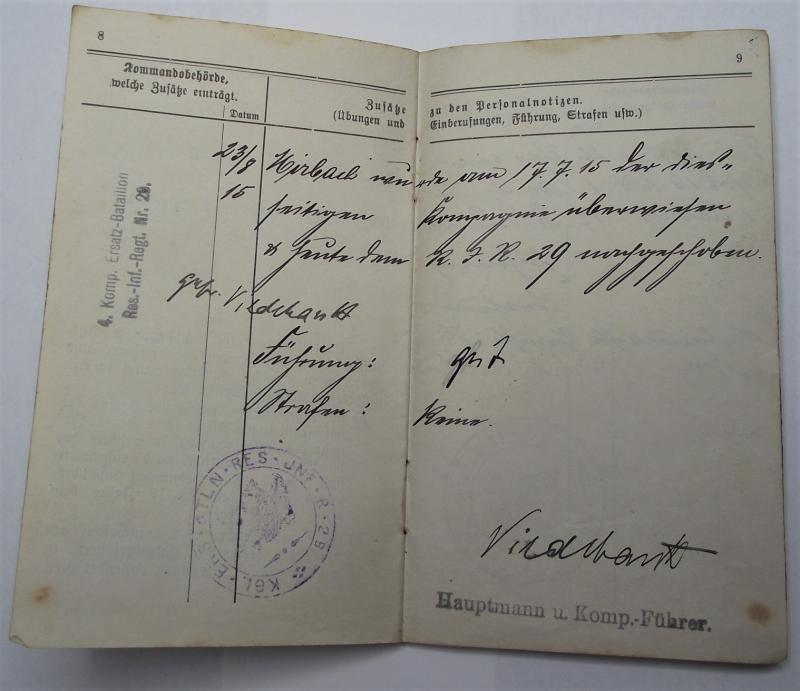 8
9
Kommandobehörde,
welche Zusätze einträgt.
Datum
Zusätze zu den Personalnotizen.
(Übungen und Einberufungen, Führung, Strafen usw.)
4. Komp. Ersatz-Bataillon
Res.-Inf.-Regt. Nr. 29.
23/8 Hirbach wurde am 17.7.15 der dies-
15 seitigen Kompagnie überwiesen
& heute dem R. I. R. 29 nachgeschoben.
gez. Vieldhankt
Führung: gut
Strafen: keine.
KGL. ERS. BTLN. RES. INF. R. 29
Hauptmann u. Komp.-Führer.